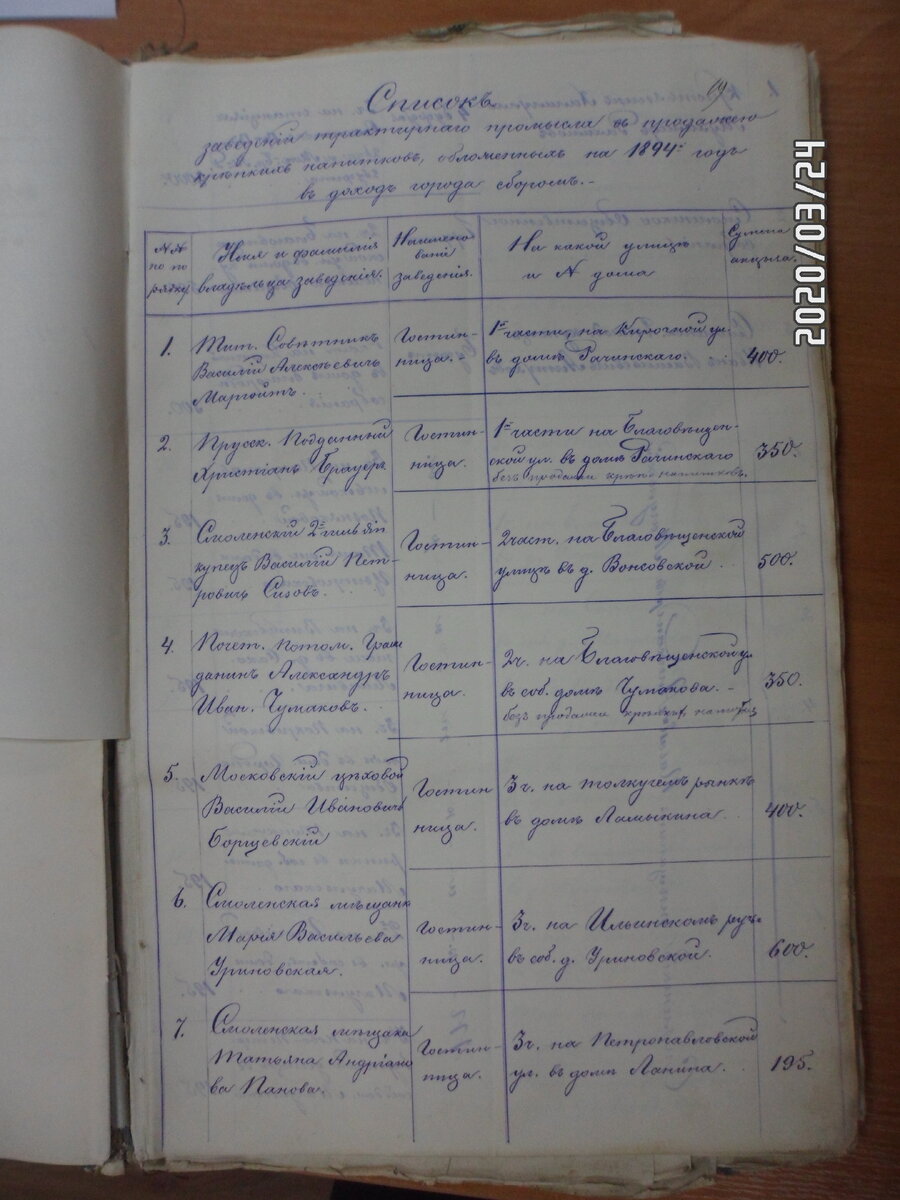 19
Списокъ
заведеній трактирнаго промысла съ продажею
крѣпкихъ напитковъ, обложенныхъ на 1894й годъ
въ доходъ города сборомъ.-
№№
по по
рядку
Имя и фамилія
владѣльца заведенія.
Наимено
ваніе
заведенія.
На какой улицѣ
и № дома
Сумма
акциза.
1.
Тит. Совѣтникъ
Василій Алексѣевичъ
Маргойтъ.
Гостин-
ница.
1й части, на Кирочной ул.
въ домѣ Рачинскаго.
400.
2.
Прусск. Подданный
Христіанъ Брауеръ
Гостин-
ница.
1й части на Благовѣщен-
ской ул. въ домѣ Рачинскаго
безъ продажи крѣпк. напитковъ.
350.
3.
Смоленскій 2й гильдіи
купецъ Василій Пет-
ровичъ Сизовъ.
Гостин-
ница.
2 част. на Благовѣщенской
улицѣ въ д. Вонсовской
500.
4.
Почет. потом. Граж
данинъ Александръ
Иван. Чумаковъ.
Гостин-
ница.
2 ч. на Благовѣщенской ул
въ соб. домѣ Чумакова.-
безъ продажи крѣпкх. напит.
350.
5.
Московскій цѣховой
Василій Ивановичъ
Борщевскій
Гостин
ница.
3 ч. на толкучемъ рынкѣ
въ домѣ Ламыкина
400.
6.
Смоленская мѣщанк
Марія Васильева
Уриновская.
Гостин-
ница.
3 ч. на Ильинскомъ ручьѣ
въ соб. д. Уриновской.
600.
7.
Смоленская мѣщанка
Татьяна Андріано
ва Панова.
Гостин-
ница.
3 ч. на Петропавловской
ул. въ домѣ Ланина.
195.
2020/03/24